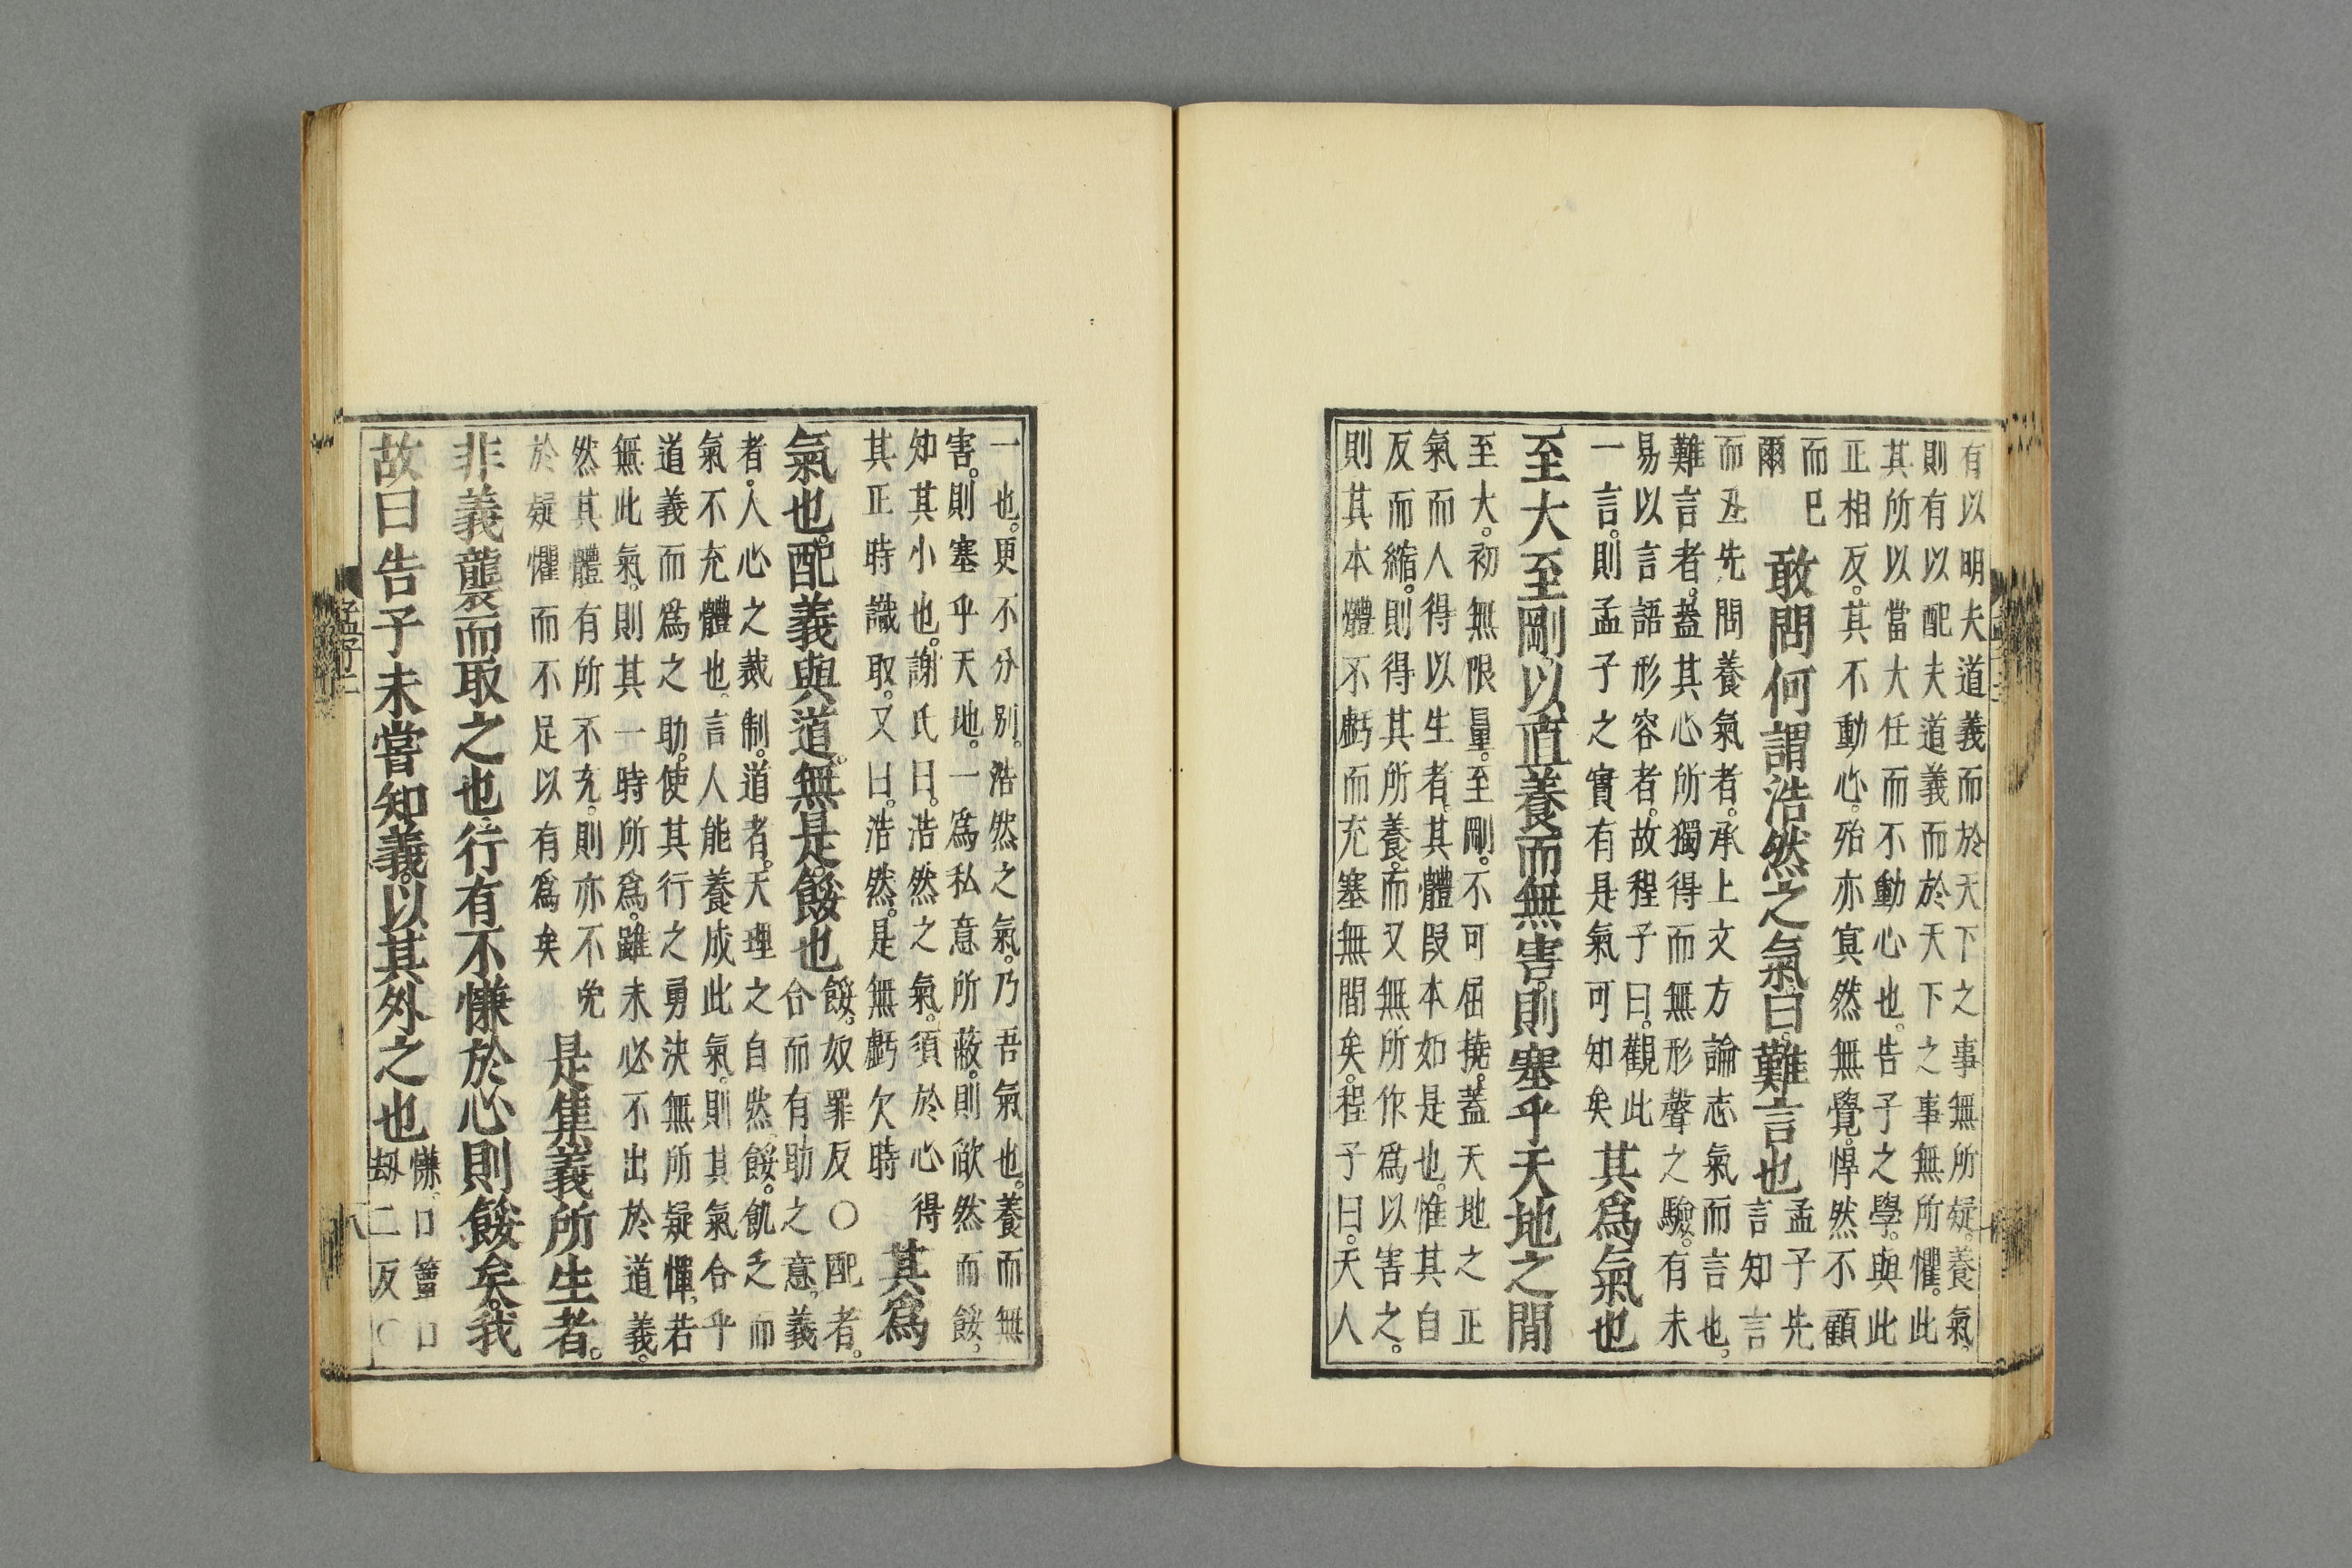 有以明夫道義而於天下之事無所疑。養氣,
則有以配夫道義而於天下之事無所懼。此
其所以當大任而不動心也。告子之學。與此
正相反。其不動心。殆亦冥然無覺。悍然不顧
而已
爾
敢問何謂浩然之氣曰。難言也
孟子先
言知言
而丑先問養氣者。承上文方論志氣而言也,
難言者。蓋其心所獨得而無形聲之驗。有未
易以言語形容者。故程子曰。觀此
一言。則孟子之實有是氣可知矣
其爲氣也
至大至剛以直養而無害。則塞乎天地之閒
至大。初無限量。至剛。不可屈撓。蓋天地之正
氣而人得以生者。其體段本如是也。惟其自
反而縮。則得其所養。而又無所作爲以害之。
則其本體不虧而充塞無間矣。程子曰。天人
一也。更不分別。浩然之氣。乃吾氣也。養而無
害。則塞乎天地。一爲私意所蔽。則欿然而餒,
知其小也。謝氏曰。浩然之氣。須於心得
其正時識取。又曰。浩然。是無虧欠時
其爲
氣也。配義與道。無是。餒也
餒。奴罪反〇配者。
合而有助之意,義
者。人心之裁制。道者。天理之自然。餒。飢乏而
氣不充體也。言人能養成此氣。則其氣合乎
道義而爲之助。使其行之勇決無所疑憚,若
無此氣。則其一時所爲。雖未必不出於道義。
然其體有所不充。則亦不免
於疑懼而不足以有爲矣
是集義所生者。
非義襲而取之也。行有不慊於心則餒矣。我
故曰告子未嘗知義。以其外之也
慊。口簟口
劫二反〇
孟子二
八